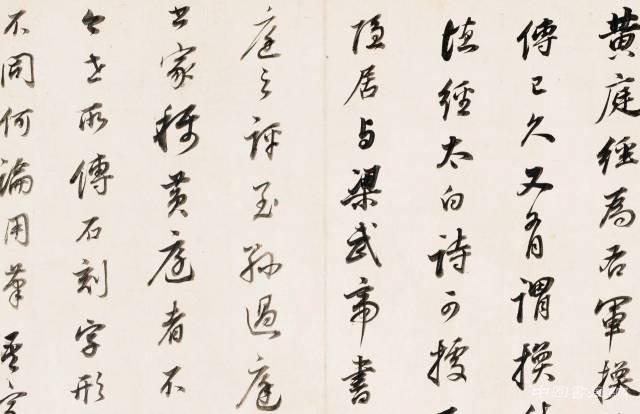 黄庭經為右軍換
傳已久又有謂換
德經太白詩可據
隱居与梁武帝書
庭之評至孫過庭
書家稱黄庭者不
今世所傳石刻字形
不同何論用筆